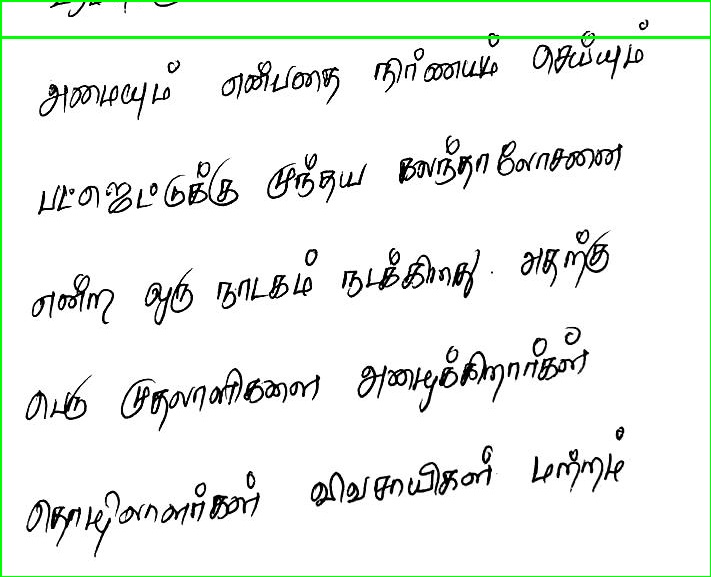 அமையும் என்பதை நிர்ணயம் செய்யும்
பட்ஜெட்டுக்கு முந்தய கலந்தாலோசனை
என்ற ஒரு நாடகம் நடக்கிறது. அதற்கு
பெரு முதலாளிகளை அழைக்கிறார்கள்
தொழிலாளர்கள் விவசாயிகள் மற்றம்